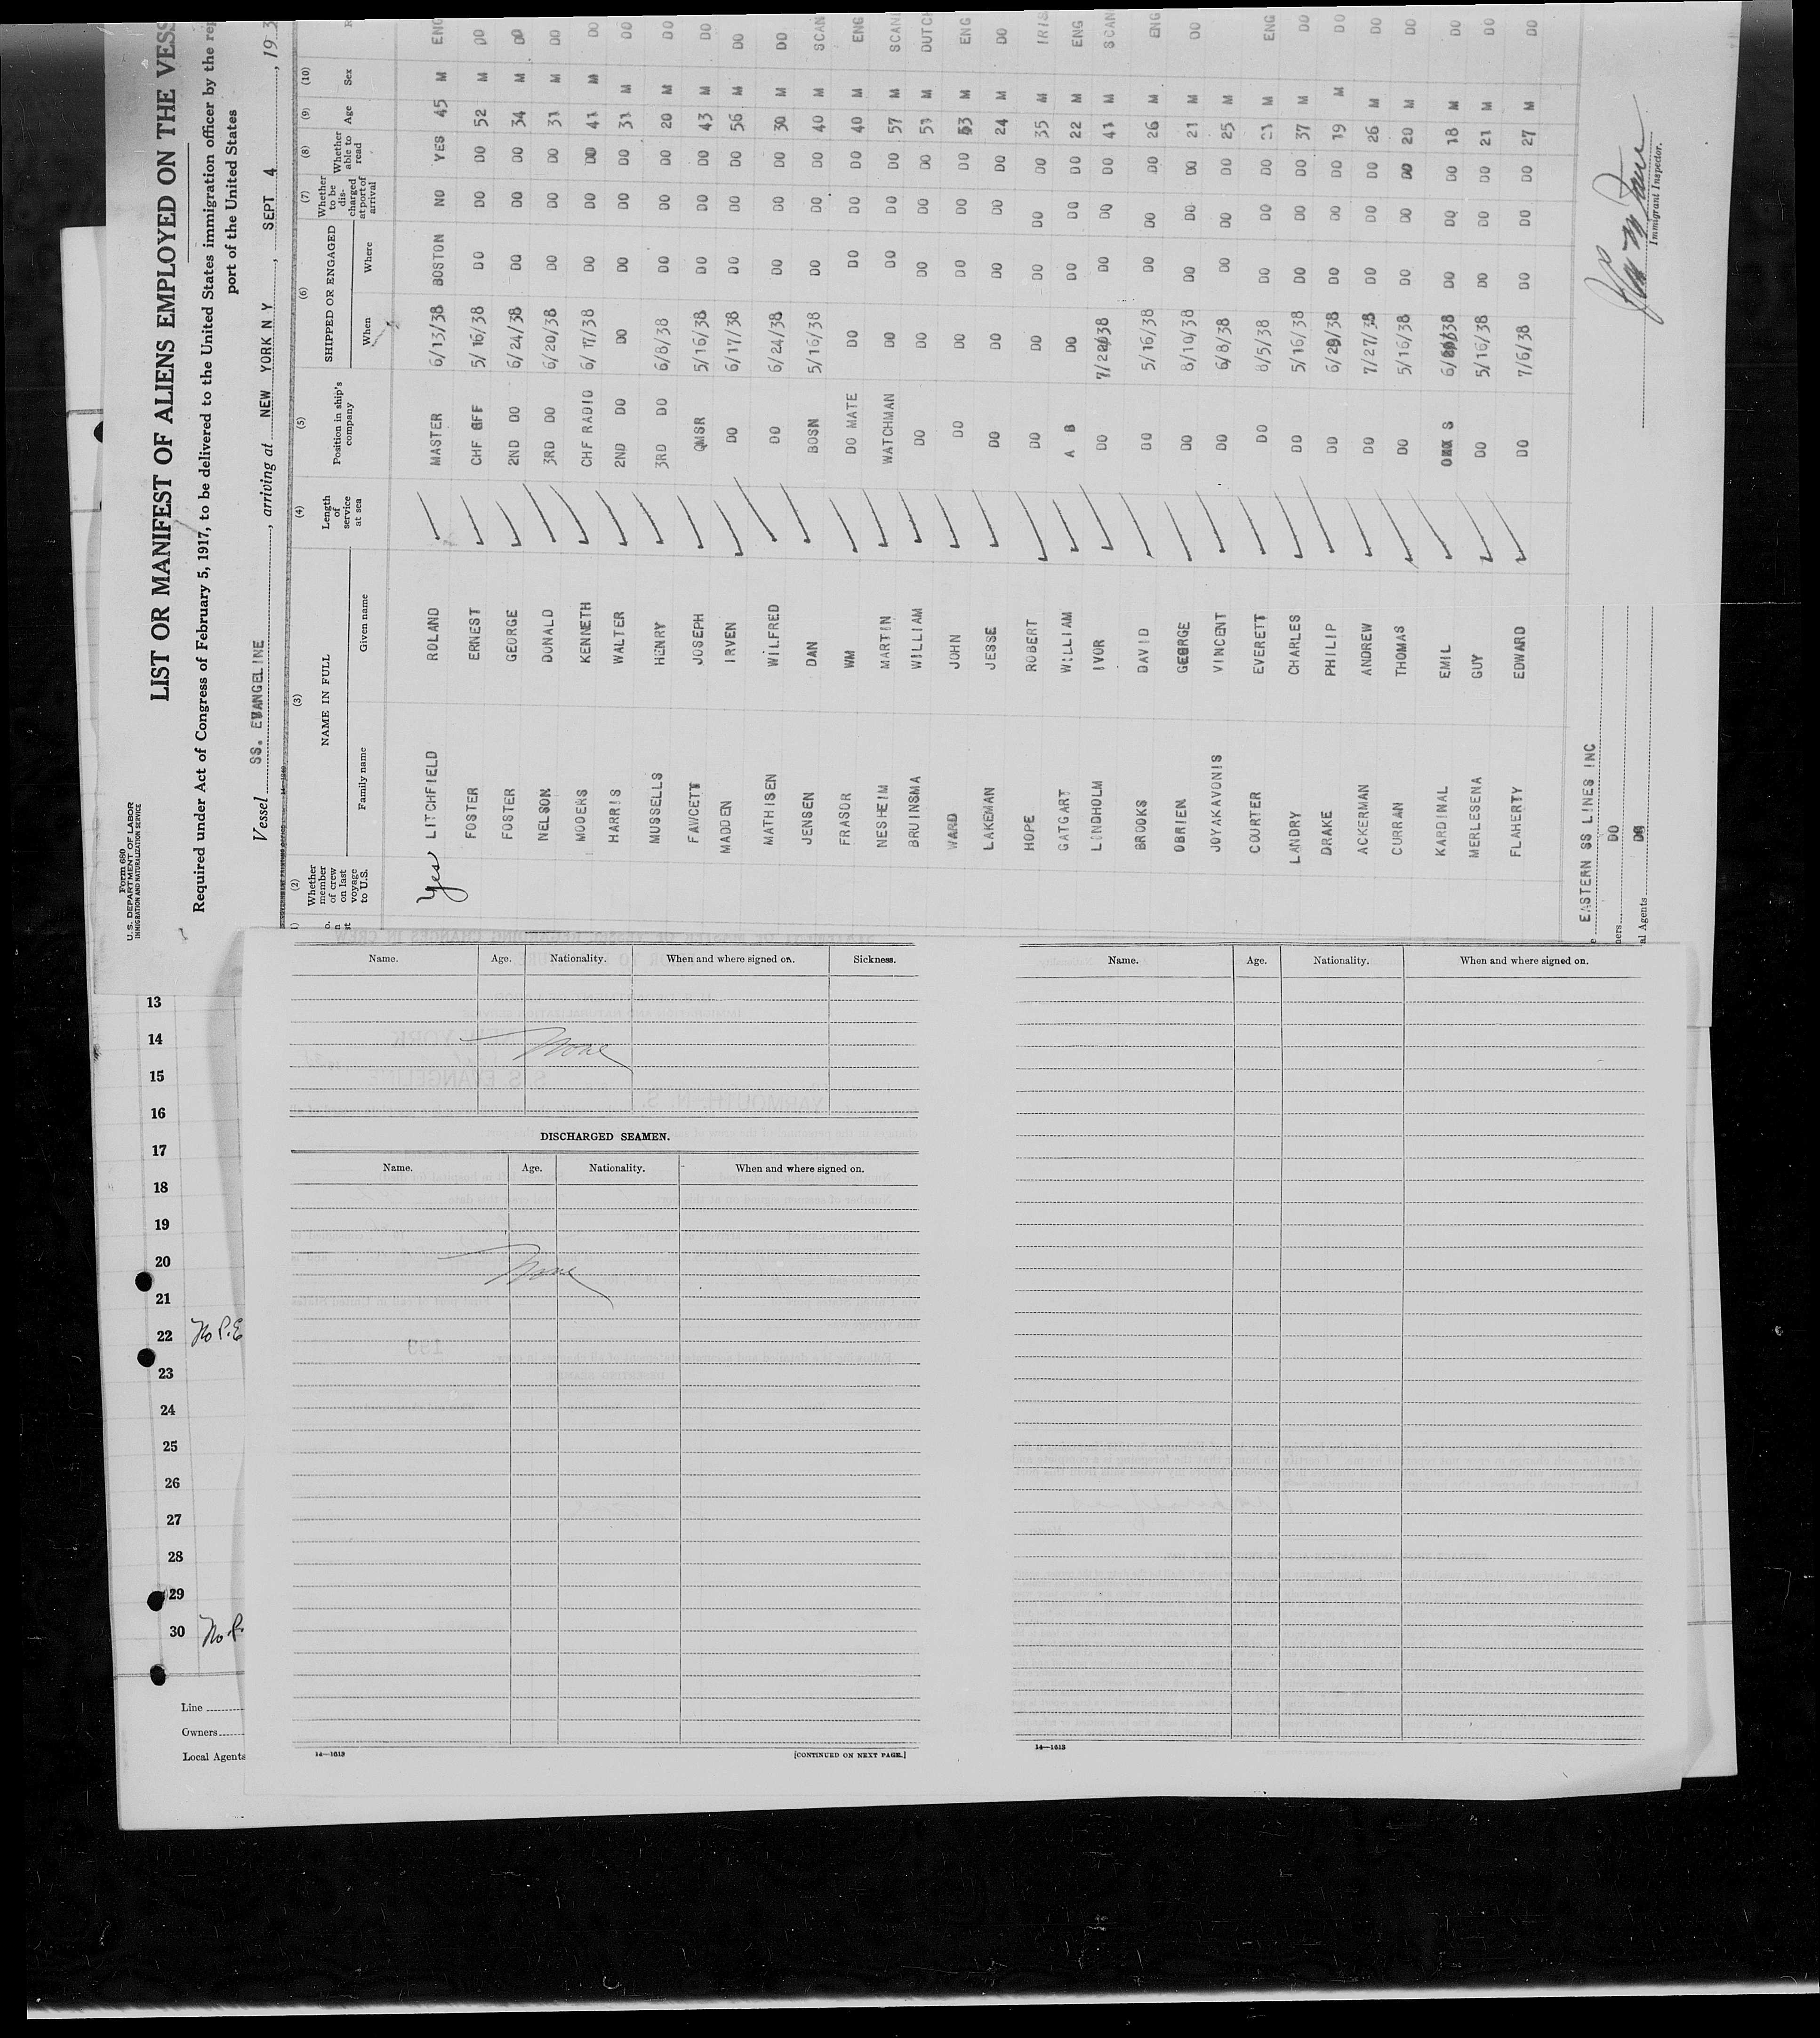 Form 680
U. S. DEPARTMENT OF LABOR
IMMIGRATION AND NATURALIZATION SERVICE
LIST OR MANIFEST OF ALIENS EMPLOYED ON THE VESS
Required under Act of Congress of February 5, 1917, to be delivered to the United States immigration officer by the rep
port of the United States
Vessel SS. EVANGELINE, arriving at NEW YORK N Y, SEPT 4, 193
(2) (3) (4) (5) (6) (7) (8) (9) (10)
Whether member of crew on last voyage to U.S. NAME IN FULL Family name Given name Length of service at sea Position in ship's company SHIPPED OR ENGAGED When Where Whether to be discharged at port of arrival Whether able to read Age Sex
Yes LITCHFIELD ROLAND MASTER 6/13/38 BOSTON NO YES 45 M ENG
FOSTER ERNEST CHF OFF 5/16/38 DO DO DO 52 M DO
FOSTER GEORGE 2ND DO 6/24/38 DO DO DO 34 M DO
NELSON DONALD 3RD DO 6/20/38 DO DO DO 31 M DO
MOOERS KENNETH CHF RADIO 6/17/38 DO DO DO 41 M DO
HARRIS WALTER 2ND DO DO DO DO DO 31 M DO
MUSSELLS HENRY 3RD DO 6/8/38 DO DO DO 20 M DO
FAWCETT JOSEPH QMSR 5/16/38 DO DO DO 43 M DO
MADDEN IRVEN DO 6/17/38 DO DO DO 56 M DO
MATHISEN WILFRED DO 6/24/38 DO DO DO 30 M DO
JENSEN DAN BOSN 5/16/38 DO DO DO 40 M SCAN
FRASOR WM DO MATE DO DO DO DO 40 M ENG
NESHEIM MARTIN WATCHMAN DO DO DO DO 57 M SCAN
BRUINSMA WILLIAM DO DO DO DO DO 51 M DUTCH
WARD JOHN DO DO DO DO DO 53 M ENG
LAKEMAN JESSE DO DO DO DO DO 24 M DO
HOPE ROBERT DO DO DO DO DO 35 M IRIS
GATGART WILLIAM A B DO DO DO DO 22 M ENG
LINDHOLM IVOR DO DO DO DO 41 M SCAN
BROOKS DAVID DO 5/16/38 DO DO DO 26 M ENG
OBRIEN GEORGE DO 8/10/38 DO DO DO 21 M DO
JOYAKAVONIS VINCENT DO 6/8/38 DO DO DO 25 M
COURTER EVERETT DO 8/5/38 DO DO DO 21 M ENG
LANDRY CHARLES DO 5/16/38 DO DO DO 37 M DO
DRAKE PHILIP DO 6/29/38 DO DO DO 19 M DO
ACKERMAN ANDREW DO 7/27/38 DO DO DO 26 M DO
CURRAN THOMAS DO 5/16/38 DO DO DO 20 M DO
KARDINAL EMIL S DO DO DO 18 M DO
MERLESENA GUY DO 5/16/38 DO DO DO 21 M DO
FLAHERTY EDWARD DO 7/6/38 DO DO DO 27 M DO
EASTERN SS LINES INC
ners DO
al Agents DO
Immigrant Inspector.
Name. Age. Nationality. When and where signed on. Sickness.
None
DISCHARGED SEAMEN.
Name. Age. Nationality. When and where signed on.
None
14—1613 [CONTINUED ON NEXT PAGE.]
Name. Age. Nationality. When and where signed on.
14—1613
13
14
15
16
17
18
19
20
21
22 No P.E
23
24
25
26
27
28
29
30 No P.
Line
Owners
Local Agents